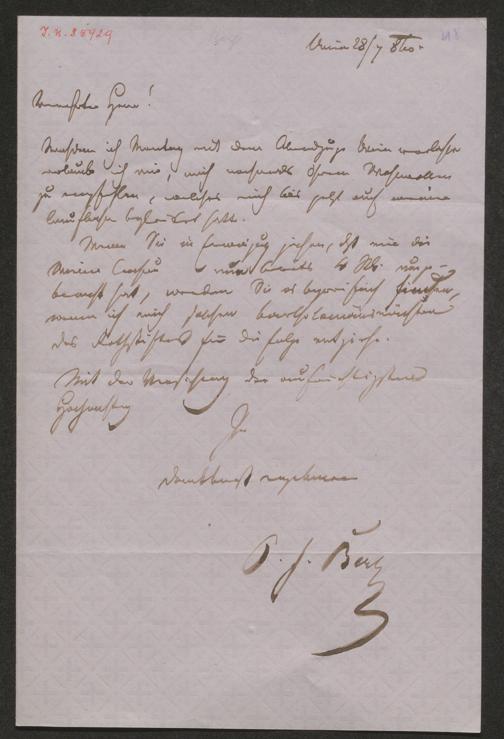 J.N. 85929
Wien 28/7 810.
Verehrter Herr!
Nachdem ich Montag mit dem Abendzuge Wien verlasse
erlaube ich mir, mich nochmals Ihrem Wohlwollen
zu empfehlen, welches mich bis jetzt auf meiner
Laufbahn begleitet hat.
Wenn Sie in Erwägung ziehen, daß mir die
Wiener bereits
hat, werden Sie es begreiflich finden,
wenn ich mich solchen
des für die Folge entziehe.
Mit der Versicherung der aufrichtigsten
Hochachtung
Ihr
dankbarst ergebener
O. F. Berg